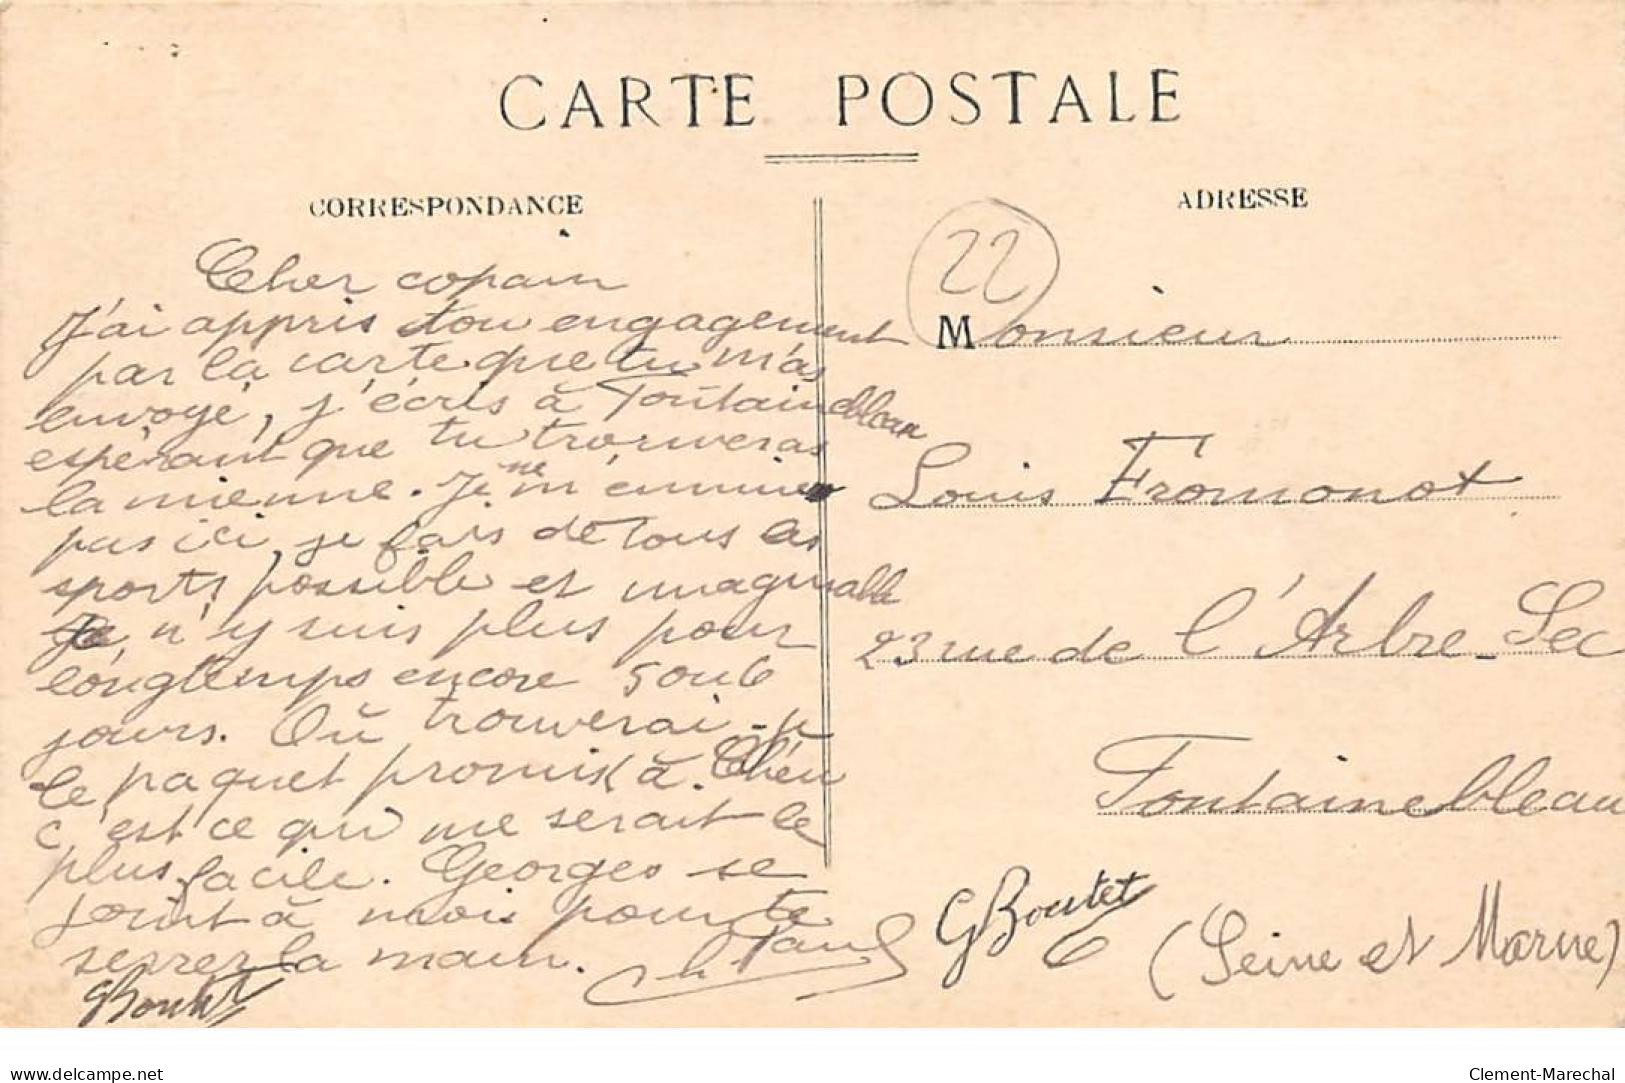 CARTE POSTALE
CORRESPONDANCE
Cher copain
J'ai appris ton engagement
par la carte que tu m'as
envoyé, j'écris à Fontainebleau
espérant que tu trouveras
la mienne. Je ne m'ennuie
pas ici, je fais de tous les
sports possible et imaginable
Je n'y suis plus pour
longtemps encore 5 ou 6
jours. Où trouverai-je
le paquet promis à
c'est ce qui me serait le
plus facile. Georges se
joint à moi pour te
serrer la main.
GBoutet
ADRESSE
22
Monsieur
Louis Fromonot
23 rue de l'Arbre-Sec
Fontainebleau
(Seine et Marne)
GBoutet
www.delcampe.net
Clement-Marechal